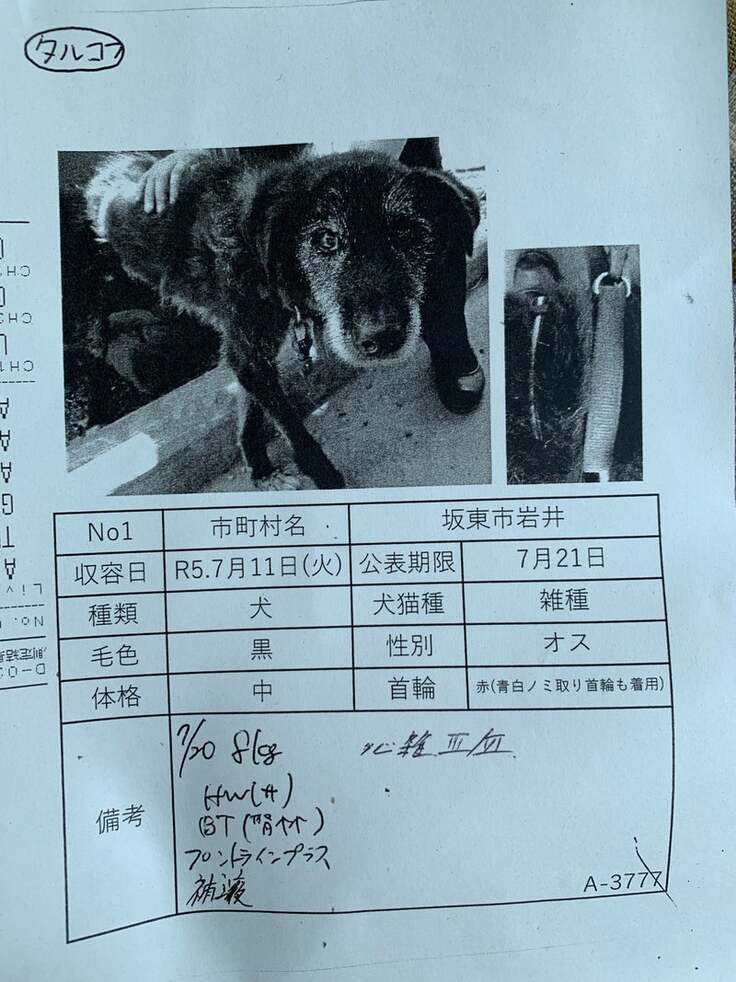 タルコフ
No1 市町村名 坂東市岩井
収容日 R5.7月11日(火) 公表期限 7月21日
種類 犬 犬猫種 雑種
毛色 黒 性別 オス
体格 中 首輪 赤(青白ノミ取り首輪も着用)
備考
7/20 8kg 心雑
HW(廾)
BT(腎
フロントラインプラス
補液
A-3777
CH
CH
CH1
A
A
A
G
A
Liv
No.
測定結
D-0